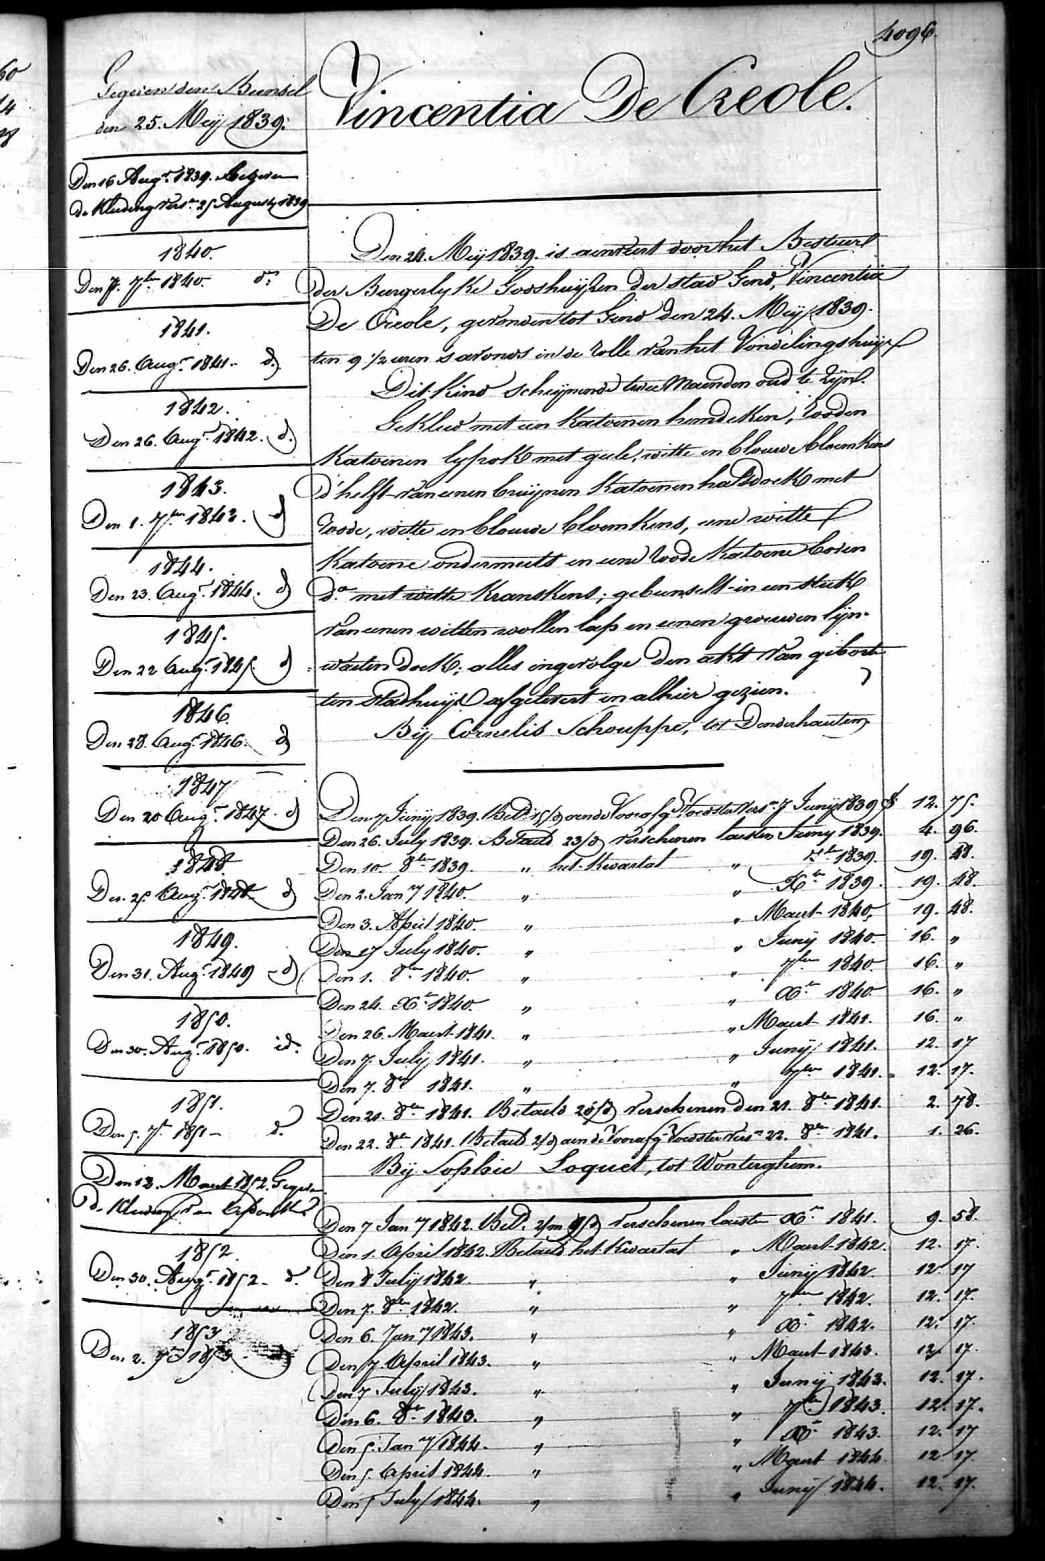 4096.
Gegeven den Bunsel
den 25. Meij 1839.
Den 16 Augt. 1839. Gegeven
de Kleeding vers.n 25 Augusty 1839
1840.
Den 7. 7ber 1840. do.
1841.
Den 26. Augt. 1841. d.
1842.
Den 26. Augt. 1842. d.
1843.
Den 1. 7ber 1843. d
1844.
Den 23. Augt. 1844. d
1845.
Den 22 Augt. 1845. d
1846.
Den 28. Augt. 1846. d
1847
Den 20 Augt. 1847. d
1848
Den 25 Augt. 1848 d
1849.
Den 31. Augt. 1849 - d
1850.
Den 30. Augt. 1850. id.
1851.
Den 5. 7br 1851 - d.
Den 13. Maart 1852. Gegeven
de Kleeding van
1852.
Den 30. Augt. 1852 - d.
1853
Den 2. 7br 1853 - d
Vincentia De Creole.
Den 24. Meij 1839. is aenveert door het Bestuerl
der Burgerlyke Godshuijsen der stad Gend, Vincentia
De Creole, gevonden tot Gend den 24. Meij 1839.
ten 9 1/2 uren s'avonds in de Rolle van het Vondelingshuijs
Dit Kind scheijnende twee Maenden oud te Zijn.
Gekleed met een Katoenen hemdeken, Rooden
Katoenen lyfrok met geele, witte en blauwe bloemkens
d'helft van eenen bruijnen Katoenen halsdoek met
Roode, witte en blauwe bloemkens, eene witte
Katoene ondermuts en eene Roode Katoene boven
do. met witte Kranskens; gebunselt in een stuk
van eenen witten wollen lap en eenen grouwen lijn-
waeten doek; alles ingevolge den akt van geboorte
ten stadhuijse afgelevert en alhier gezien.
Bij Cornelis Schouppe, tot Denderhautem,
Den 7 Junij 1839. Betd. 15/d en de Voorafg. Voedster vers.n 7 Junij 1839 f 12. 75.
Den 26. July 1839. Betaeld 23/d verschenen laesten Juny 1839. 4. 96.
Den 10. 8ber 1839. " het Kwartael " 7ber 1839. 19. 48.
Den 2. Jany 1840. " " Xber 1839. 19. 48.
Den 3. April 1840. " " Maart 1840. 19. 48.
Den 17 July 1840. " " Junij 1840. 16. "
Den 1. 8ber 1840. " " 7ber 1840. 16. "
Den 24. Xber 1840. " " Xber 1840 16. "
Den 26. Maart 1841. " " Maart 1841. 16. "
Den 7. July 1841. " " Junij 1841. 12. 17
Den 7. 8br 1841. " " 7ber 1841. 12. 17.
Den 21. 8ber 1841. Betaeld 20/d verschenen den 21. 8ber 1841. 2. 78.
Den 22. 8br 1841. Betaeld 2/d aen de Voorafg. Voedster vers.n 22. 8ber 1841. 1. 26.
Bij Sophie Loquet, tot Wonterghem.
Den 7 Jany 1842. Betd. 2/m 9/d verschenen laesten Xber 1841. 9. 58.
Den 1. April 1842. Betaeld het Kwartael " Maart 1842. 12. 17.
Den 8 Julij 1842 " " Junij 1842. 12 17
Den 7. 8br 1842. " " 7ber 1842. 12. 17.
Den 6. Jany 1843. " " Xbr 1842. 12. 17.
Den 7. April 1843. " " Maart 1843. 12 17.
Den 7 July 1843. " " Junij 1843. 12. 17.
Den 6. 8br 1843. " " 7br 1843. 12. 17.
Den 5. Jany 1844. " " Xbr 1843. 12. 17
Den 5. April 1844. " " Maart 1844. 12 17.
Den 5 July 1844. " " Junij 1844. 12. 17.